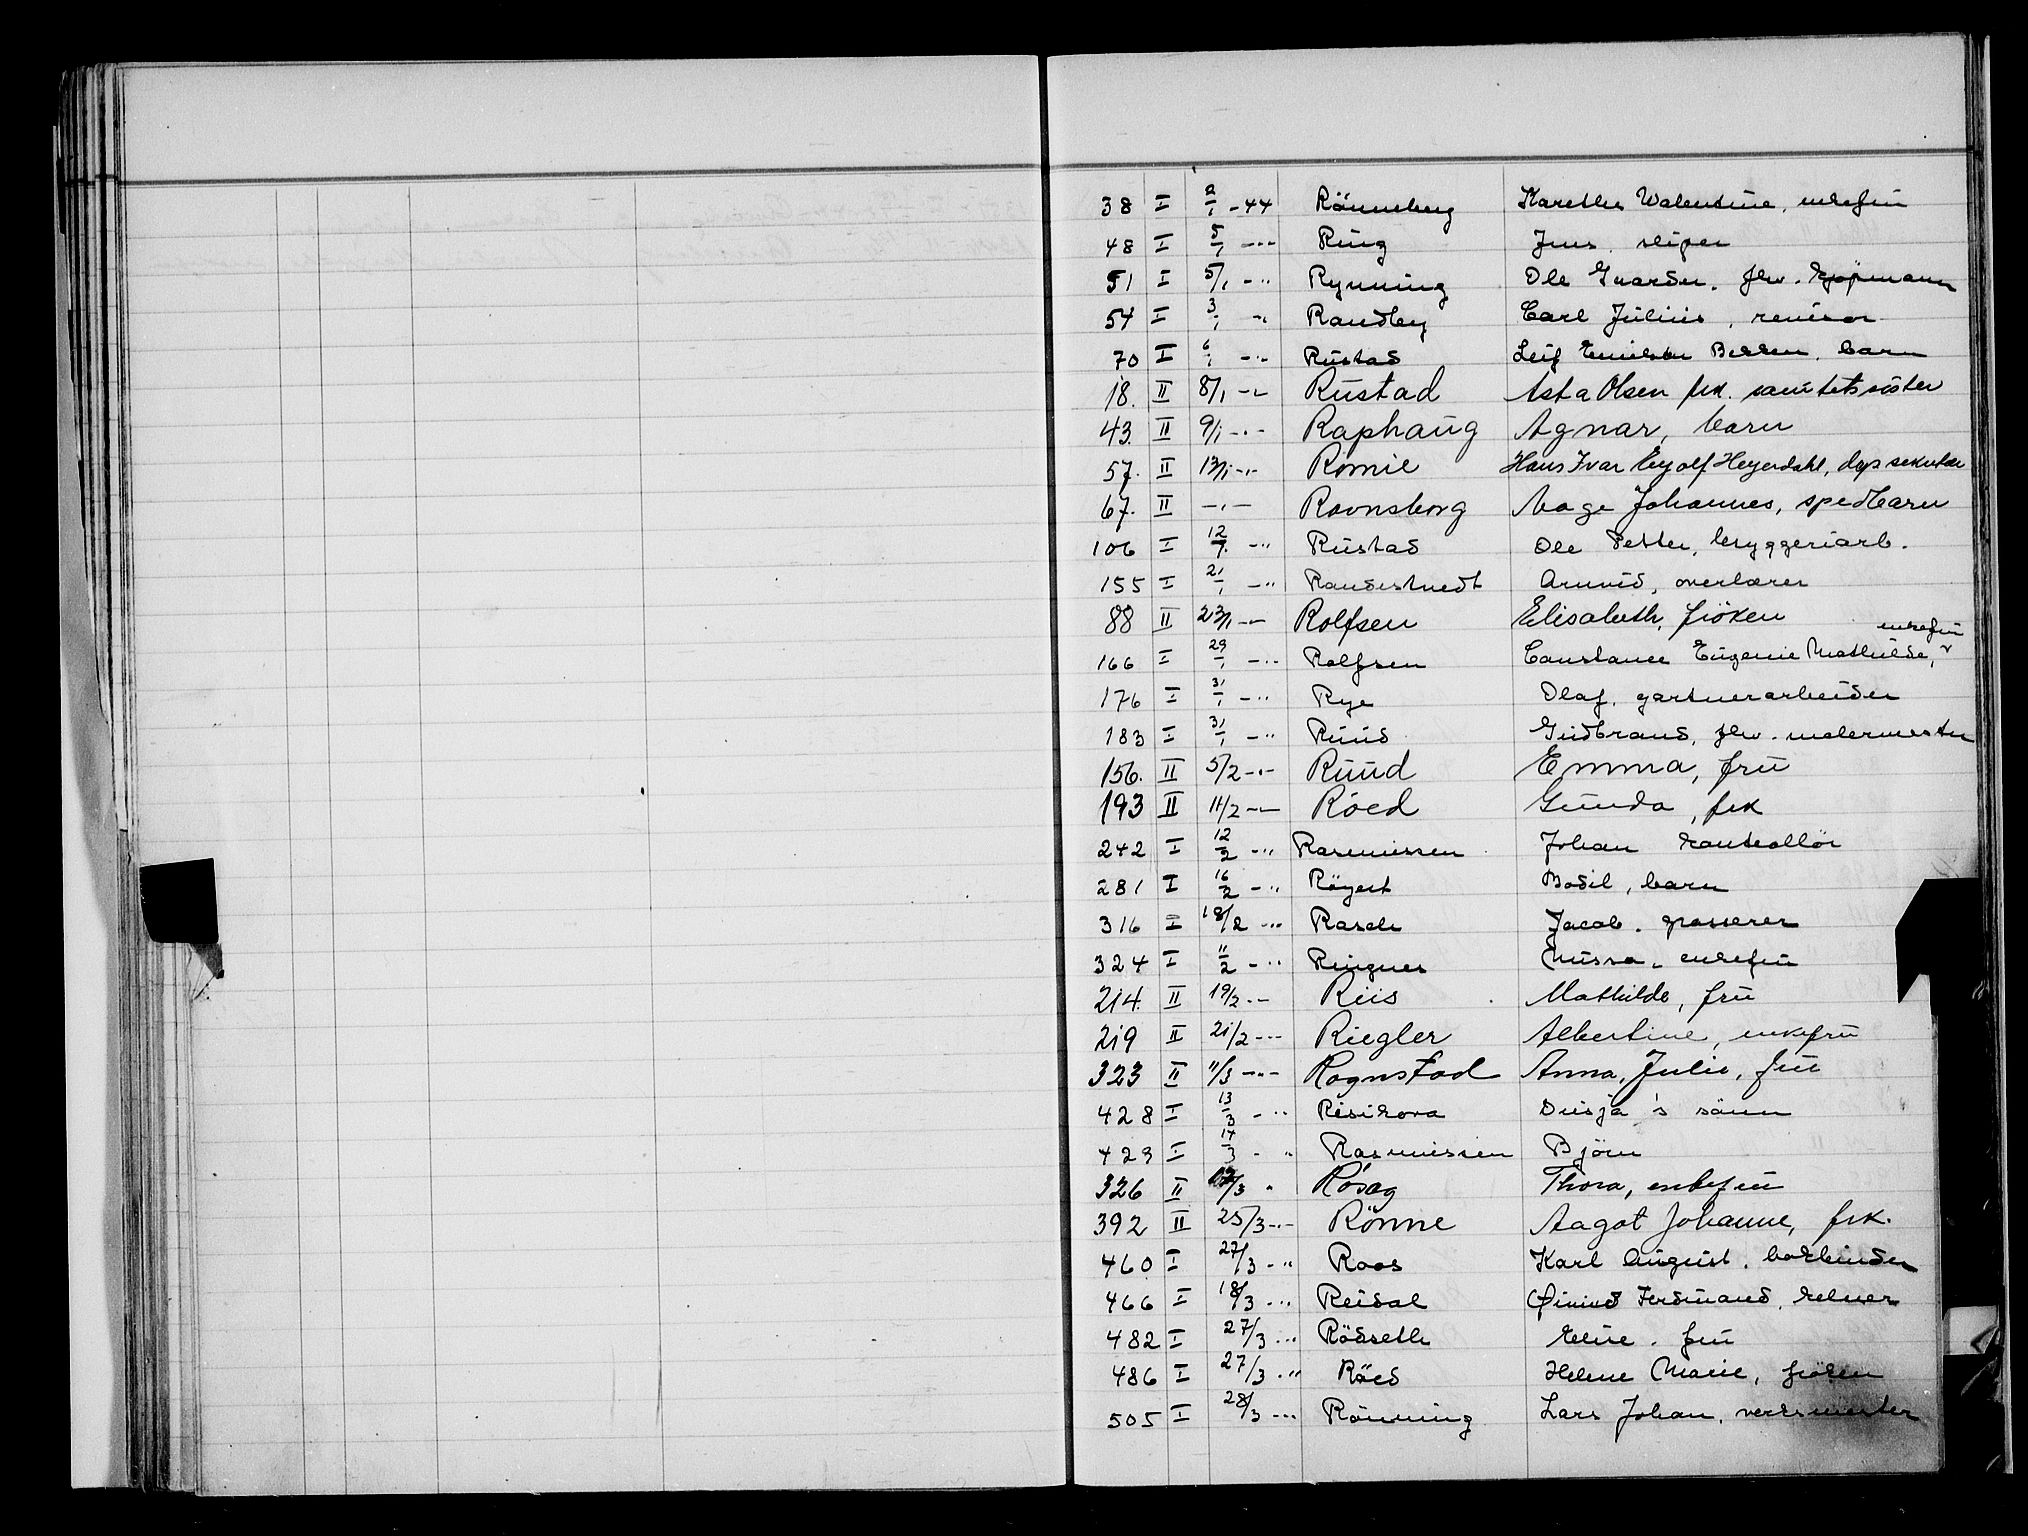 38 I 2/1 -44 Rönneberg Karethe Walentine, enkefru
48 I 5/1 -"- Ring Jens, sliper
51 I 5/1 -"- Rynning Ole Gvarder. fhv. kjøpmann
54 I 3/1 -"- Randby Carl Julius, revisor
70 I 6/1 -"- Rustad Leif barn
18. II 8/1 -"- Rustad Asta Olsen frk. sanitetssöster
43. II 9/1 -"- Raphaug Agnar, barn
57. II 13/1 -"- Romie Hans Ivar Eyolf Heyerdahl, dep sekretær
67. II -"- Ravnsborg Aage Johannes, spedbarn
106 I 12/1 -"- Rustad Ole Petter, bryggeriarb.
155 I 21/1 -"- Randestvedt Arnvid, overlærer
88 II 23/1 -"- Rolfsen Elisabeth, fröken
166 I 29/1 -"- Rolfsen Constance Eugenie Mathilde, enkefru
176 I 31/1 -"- Rye Olaf, gartnerarbeider
183 I 31/1 -"- Ruud Gudbrand, fhv. malermester
156. II 5/2 -"- Ruud Emma, fru
193 II 11/2 -"- Röed Gunda, frk
242 I 12/2 -"- Rasmussen Johan kontrollör
281 I 16/2 -"- Röyert Bodil, barn
316 I 18/2 -"- Rasch Jacob. grosserer
324 I 11/2 -"- Ringnes Mussa, enkefru
214. II 19/2 -"- Riis Mathilde, fru
219 II 21/2 -"- Riegler Albertine, enkefru
323 II 11/3 -"- Rognstad Anna, Julie, fru
428 I 13/3 -"- Risikova Dusja's sönn
429 I 14/3 -"- Rasmussen Björn
326 II 12/3 " Rösag Thora, enkefru
392 II 25/3 -"- Rönne Aagot Johanne, frk.
460 I 27/3 -"- Roos Karl August, bokbinder
466 I 18/3 -"- Reidal Øivind Ferdinand, kelner
482 I 27/3 -"- Rödseth Eline. fru
486 I 27/3 -"- Röed Helene Marie, fröken
505 I 28/3 -"- Rönning Lars Johan, verksmester